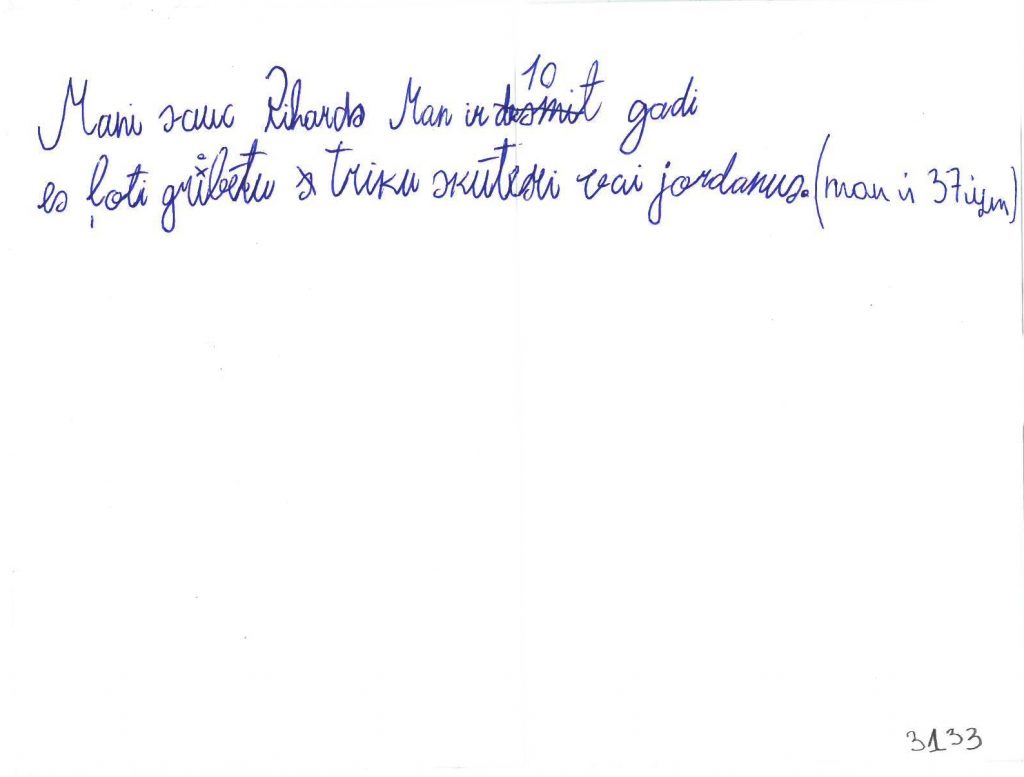 Mani sauc Rihards Man ir 10 gadi
es ļoti gribētu triku skūteri vai jordanus. (man ir 37izm)
3133